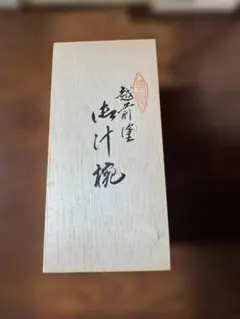 越前塗
御汁椀